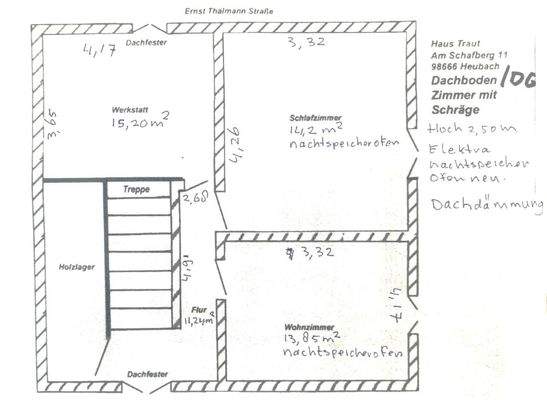 Ernst Thälmann Straße
Dachfester
4,17
3,32
Haus Traut
Am Schafberg 11
98666 Heubach
Dachboden /DG
Zimmer mit
Schräge
Hoch 2,50m
Elektra
nachtspeicher
Ofen neu.
Dachdämmung
Werkstatt
15,20 m²
Schlafzimmer
14,2 m²
nachtspeicherofen
4,26
Treppe
2,68
Holzlager
4,91
3,32
4,17
Flur
11,24m²
Wohnzimmer
13,85 m²
nachtspeicherofen
Dachfester